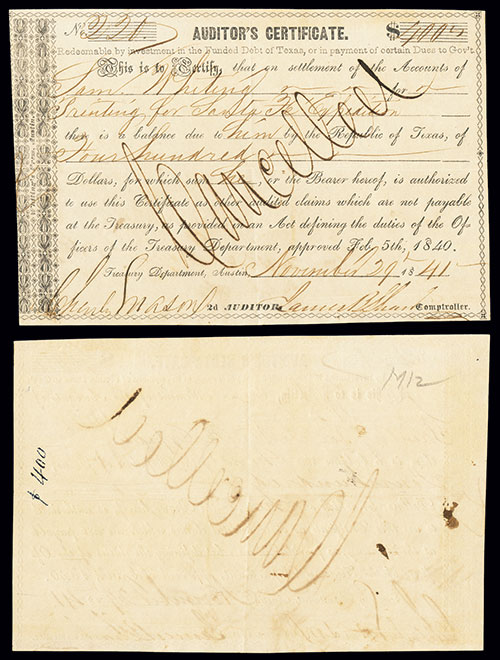 No. 220 AUDITOR'S CERTIFICATE. $400
Redeemable by investment in the Funded Debt of Texas, or in payment of certain Dues to Gov't.
This is to Certify, that on settlement of the Accounts of
Sam Whiting for
Printing for Santa Fe Expedition
there is a balance due to him by the Republic of Texas, of
Four hundred
Dollars, for which sum he, or the Bearer hereof, is authorized
to use this Certificate as other audited claims which are not payable
at the Treasury, as provided in an Act defining the duties of the Of-
ficers of the Treasury Department, approved Feb. 5th, 1840.
Treasury Department, Austin, November 29th 1841
Charles Mason 2d AUDITOR. James B Shaw Comptroller.
Cancelled
M12
$400
Cancelled